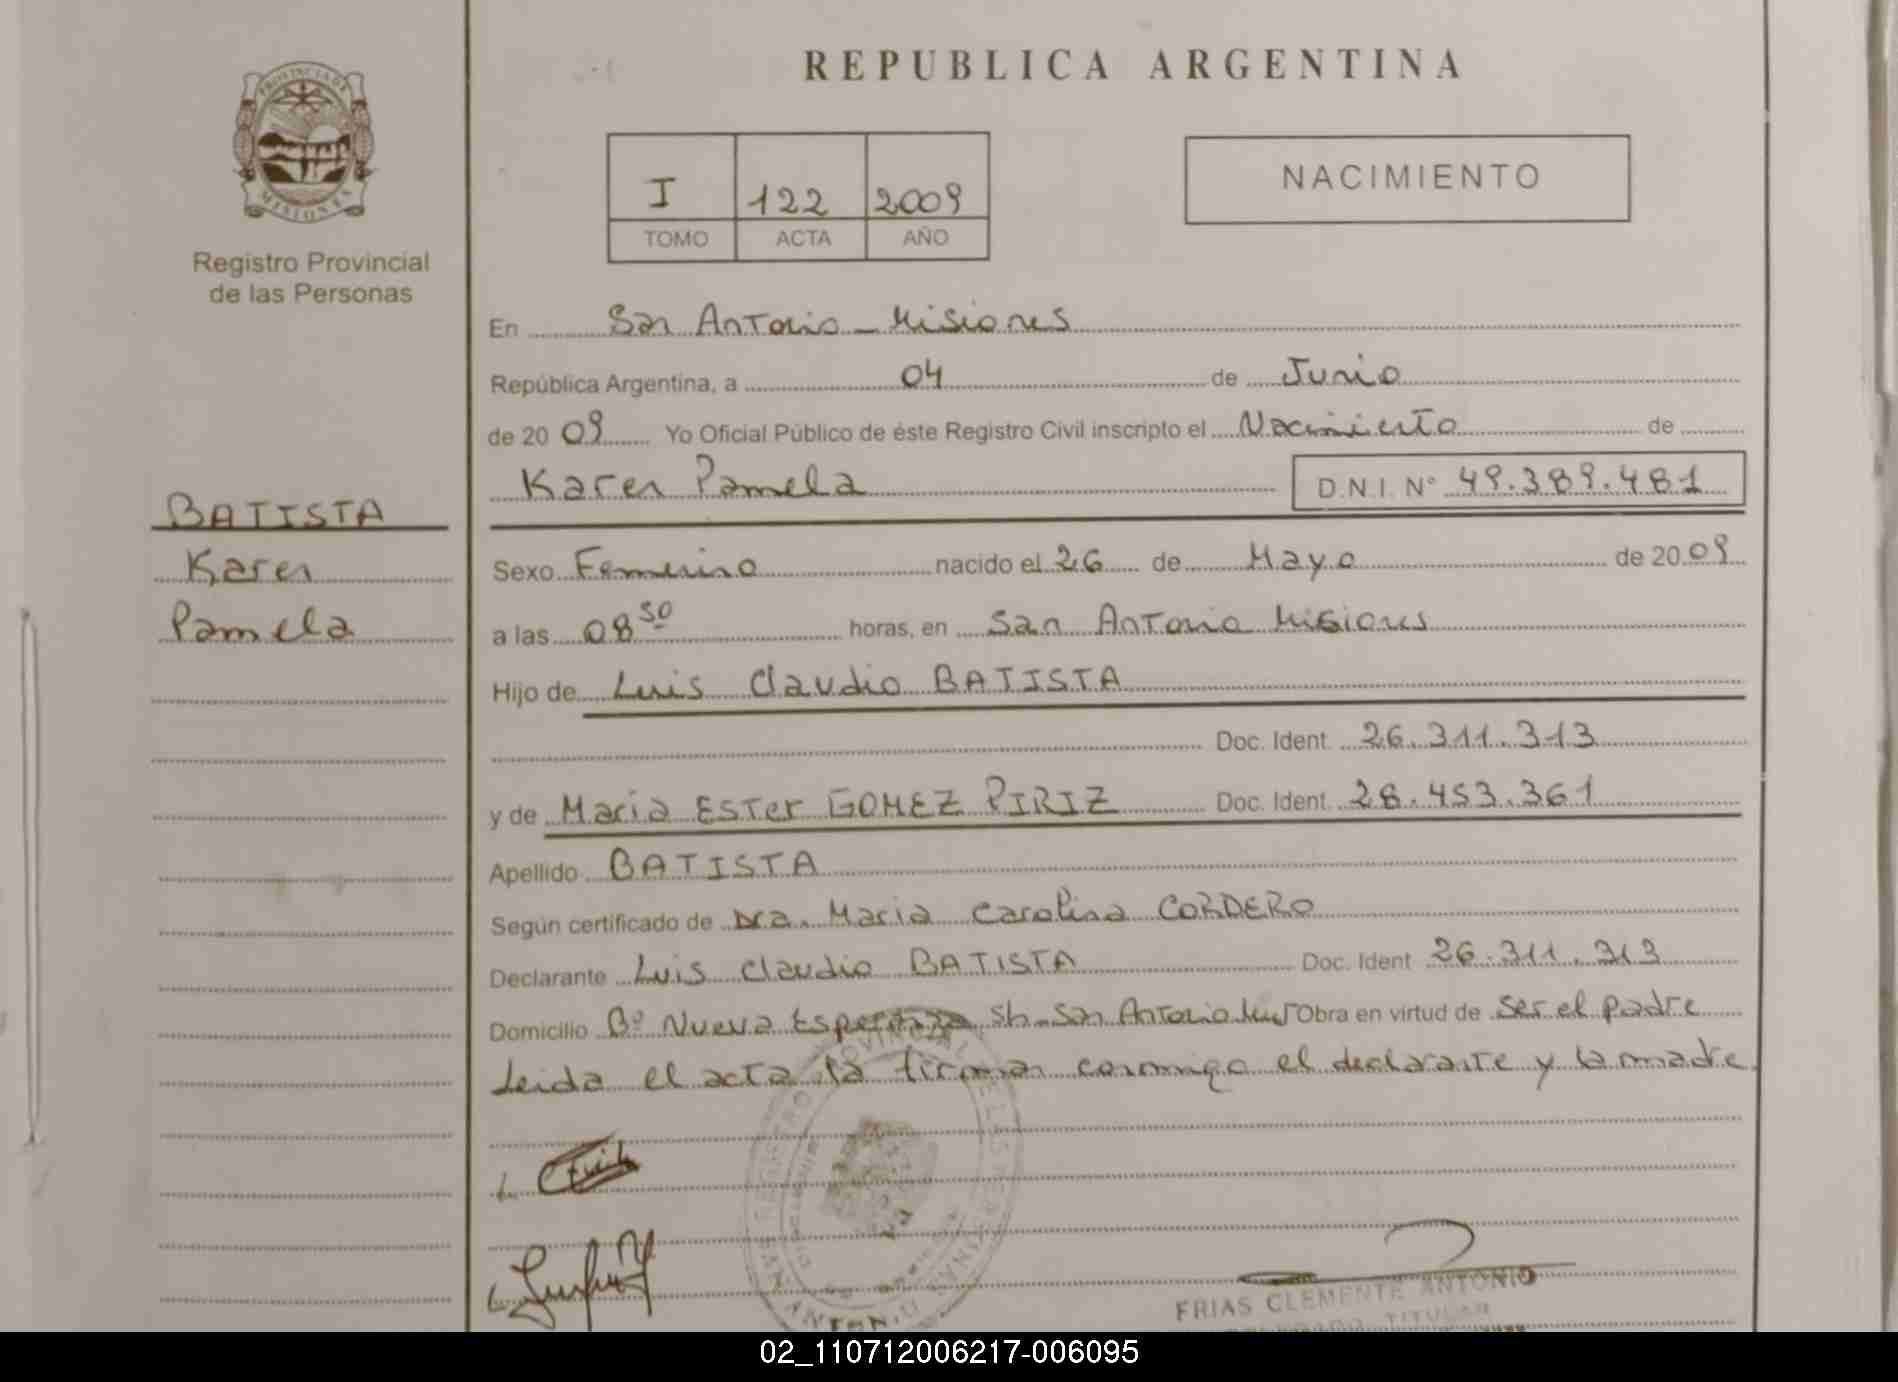 REPUBLICA ARGENTINA
PROVINCIA DE
MISIONES
Registro Provincial
de las Personas
I 122 2009
TOMO ACTA AÑO
NACIMIENTO
En San Antonio - Misiones
República Argentina, a 04 de Junio
de 20 09 Yo Oficial Público de éste Registro Civil inscripto el Nacimiento de
Karen Pamela D.N.I. N° 49.389.481
BATISTA
Karen
Pamela
Sexo Femenino nacido el 26 de Mayo de 20 09
a las 08 50 horas, en San Antonio Misiones
Hijo de Luis Claudio BATISTA
Doc. Ident. 26.311.313
y de Maria Ester GOMEZ PIRIZ Doc. Ident. 28.453.361
Apellido BATISTA
Según certificado de Dra. Maria Carolina CORDERO
Declarante Luis Claudio BATISTA Doc. Ident 26.311.313
Domicilio Bº Nueva Esperanza S/n - San Antonio Mns Obra en virtud de ser el padre
Leida el acta la firman conmigo el declarante y la madre.
REGISTRO PROVINCIAL DE LAS PERSONAS
SAN ANTONIO
FRIAS CLEMENTE ANTONIO
TITULAR
02_110712006217-006095